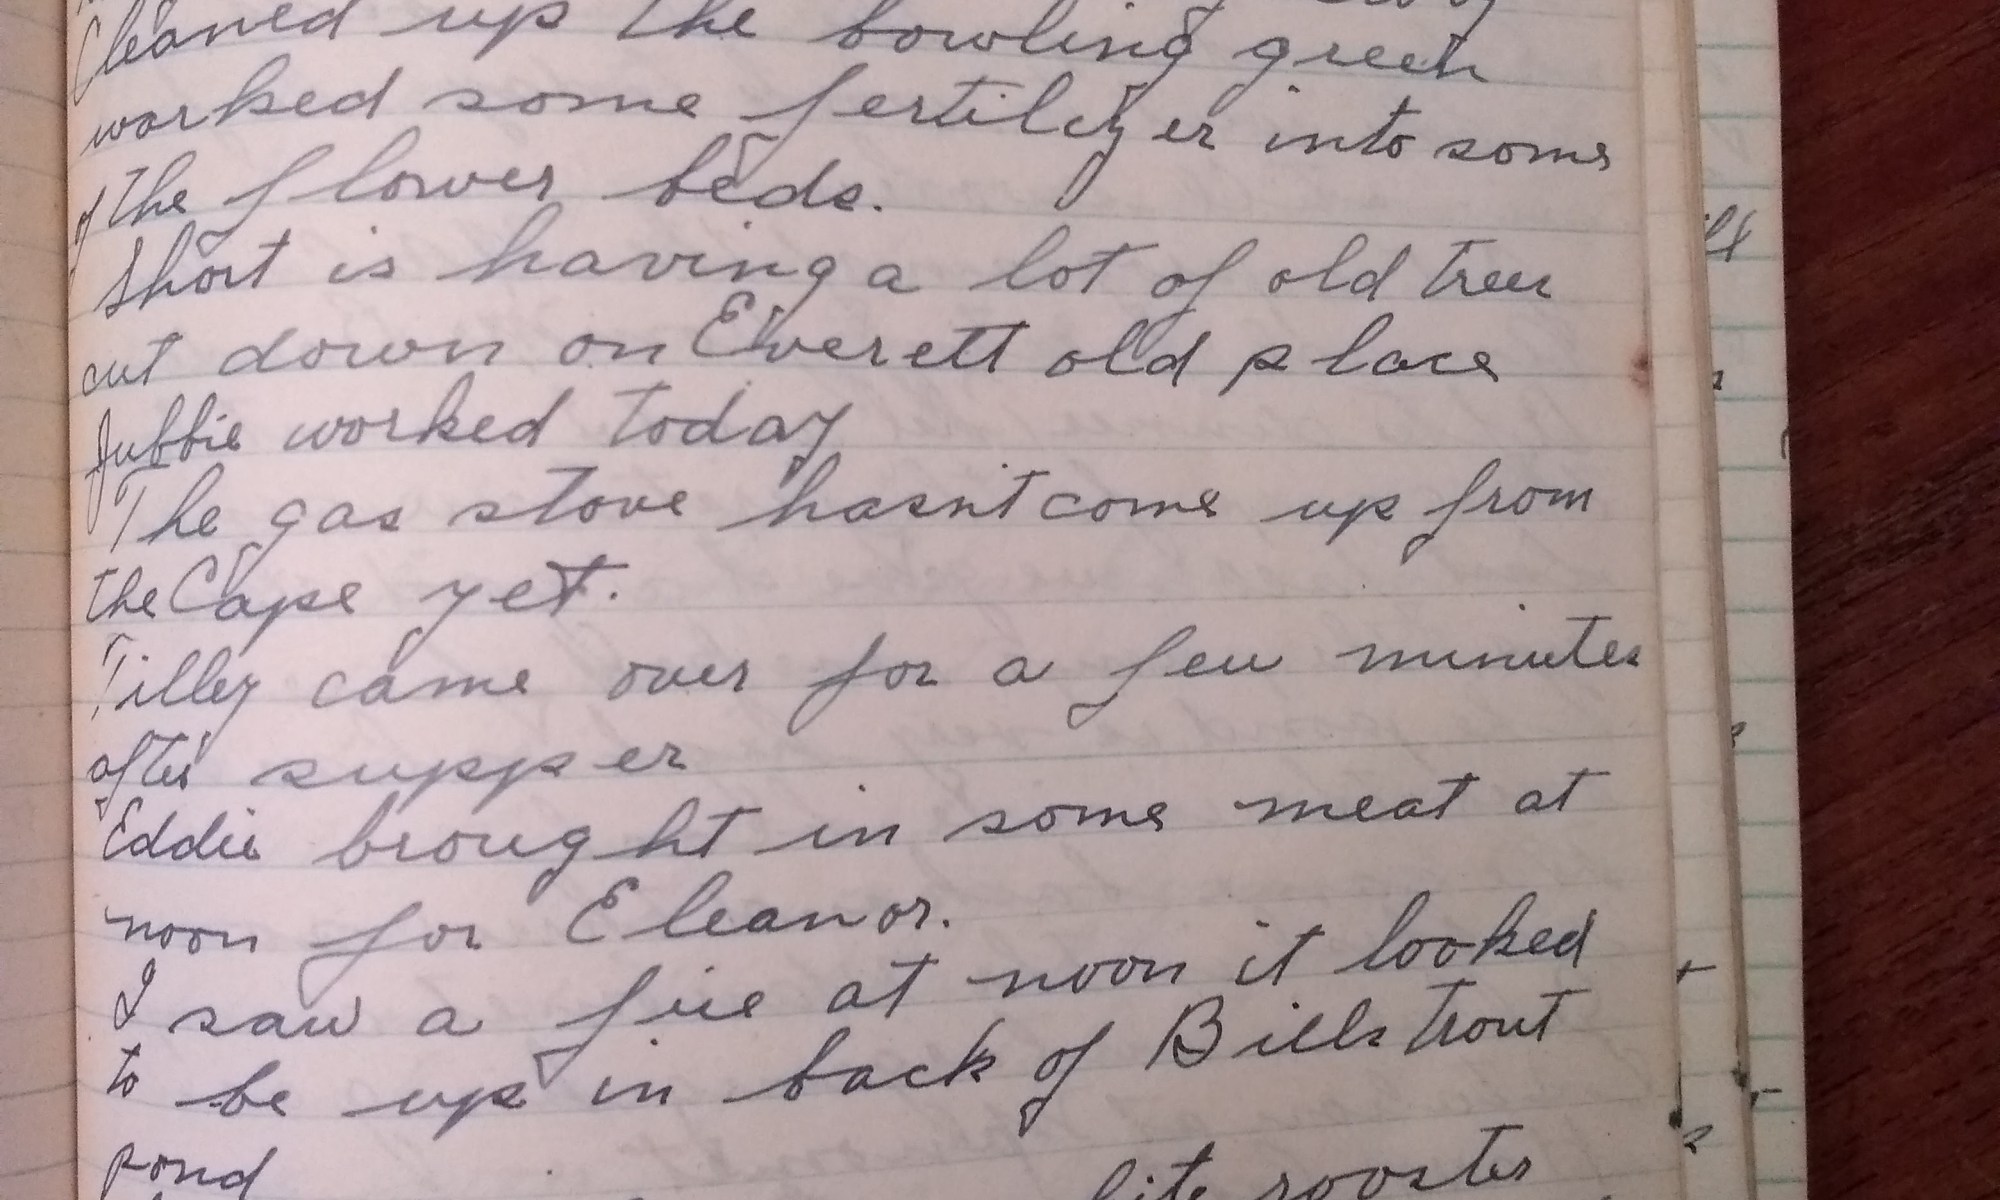 Cleaned up the bowling green
worked some fertilizer into some
of the flower beds.
Short is having a lot of old trees
cut down on Everett old place
Jubbie worked today
The gas stove hasn't come up from
the Cape yet.
Tilley came over for a few minutes
after supper
Eddie brought in some meat at
noon for Eleanor.
I saw a fire at noon it looked
to be up in back of Bills trout
pond
rooster